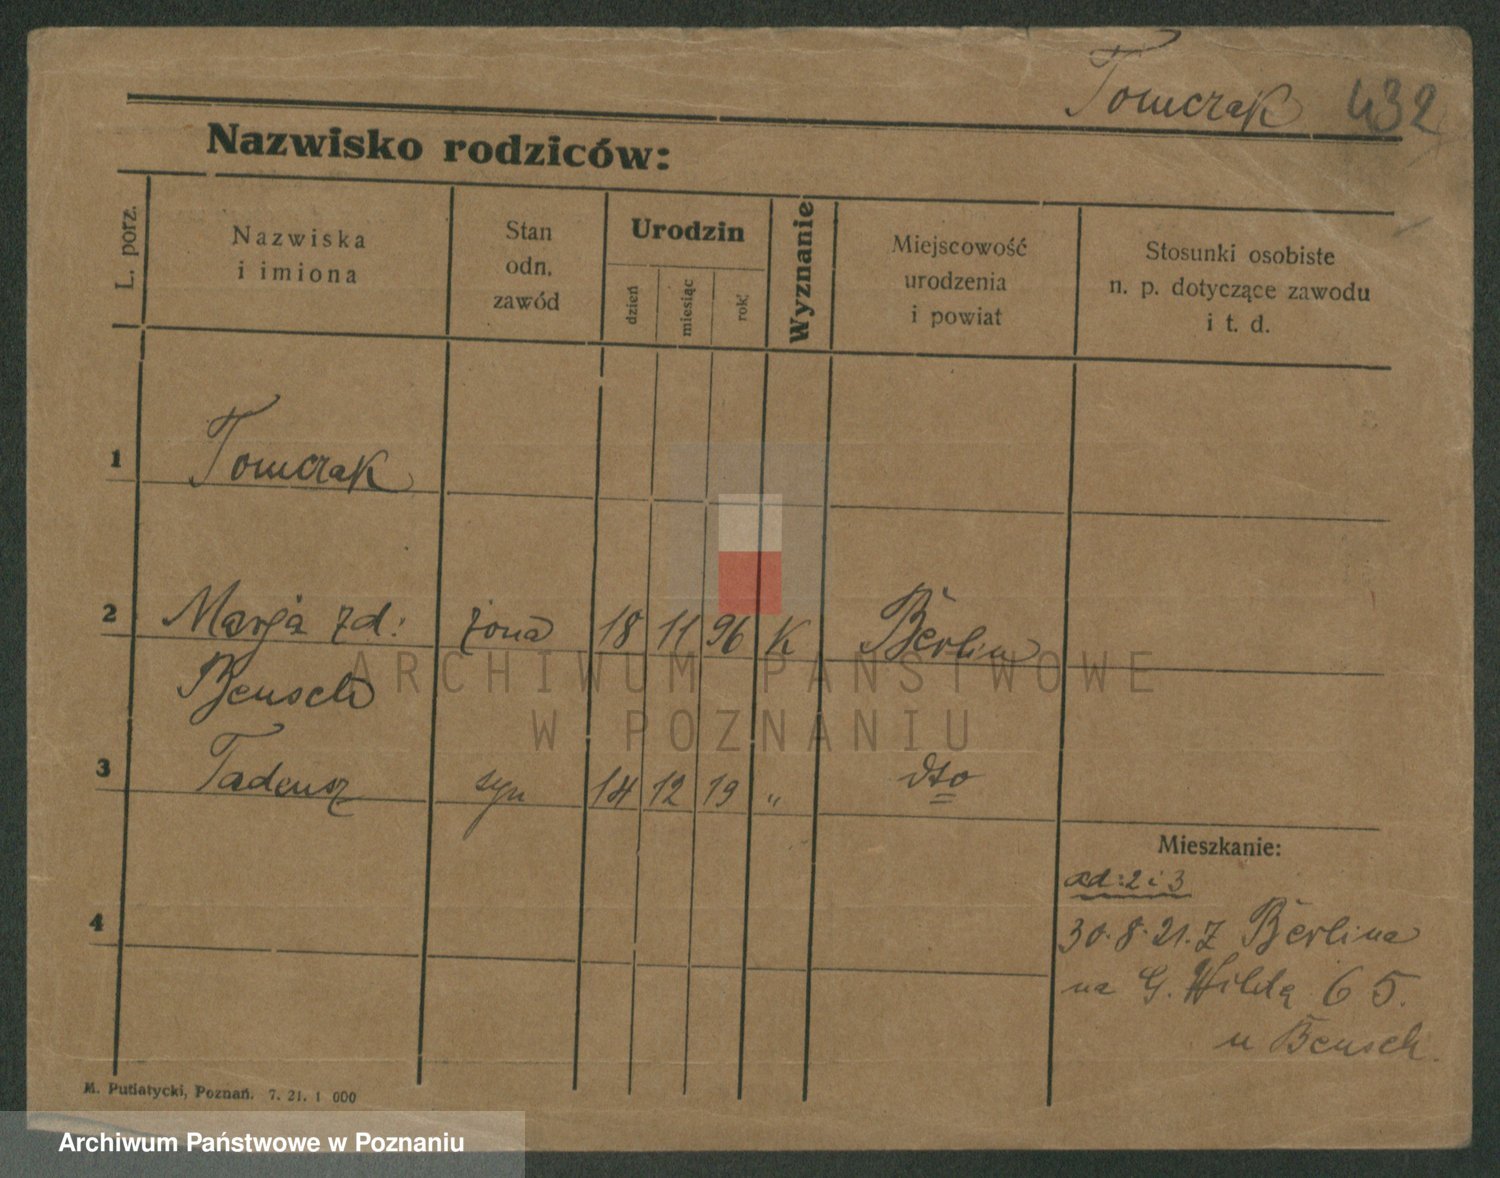 Tomczak 432
Nazwisko rodziców:
L. porz.
Nazwiska
i imiona
Stan
odn.
zawód
Urodzin
dzień
miesiąc
rok
Wyznanie
Miejscowość
urodzenia
i powiat
Stosunki osobiste
n. p. dotyczące zawodu
i t. d.
1 Tomczak
2 Marja zd: żona 18 11 96 K Berlin
Beusch
3 Tadeusz syn 14 12 19 „ dto
Mieszkanie:
ad: 2 i 3
4
30.8.21. z Berlina
na G. Wildą 65.
u Beusch.
M. Putiatycki, Poznań. 7. 21. 1 000
ARCHIWUM PAŃSTWOWE
W POZNANIU
Archiwum Państwowe w Poznaniu